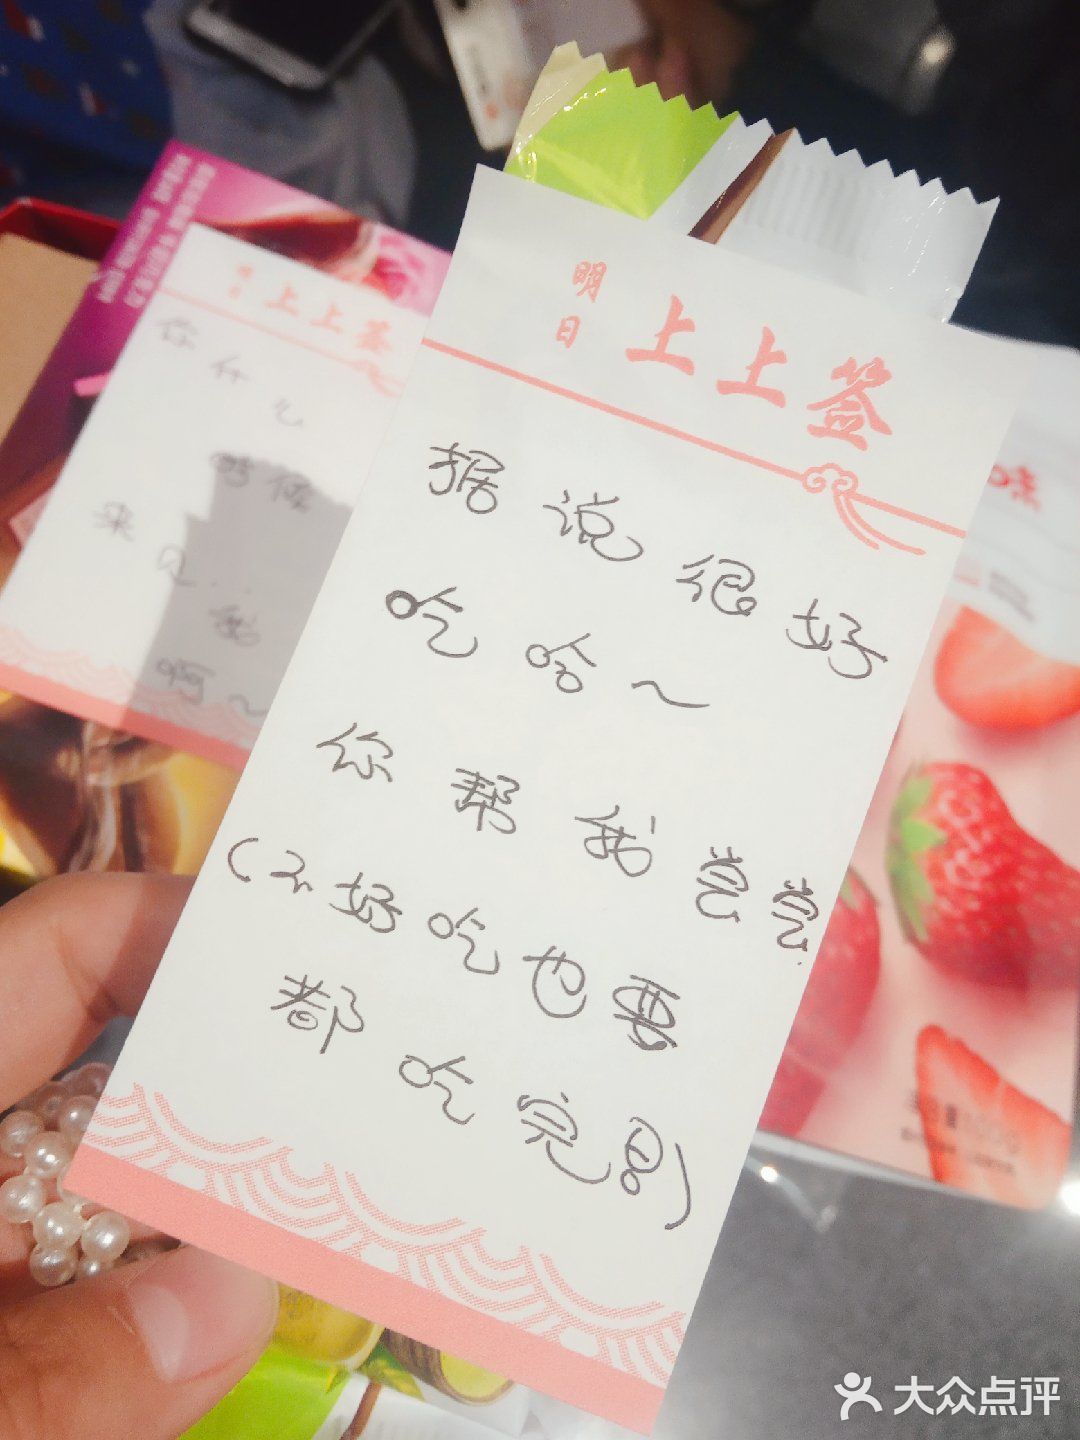 明日
上上签
据说很好
吃哈～
你帮我尝尝
（不好吃也要
都吃完昂）
明日
上上签
你什么
时候
来见..我
啊～
味
大众点评